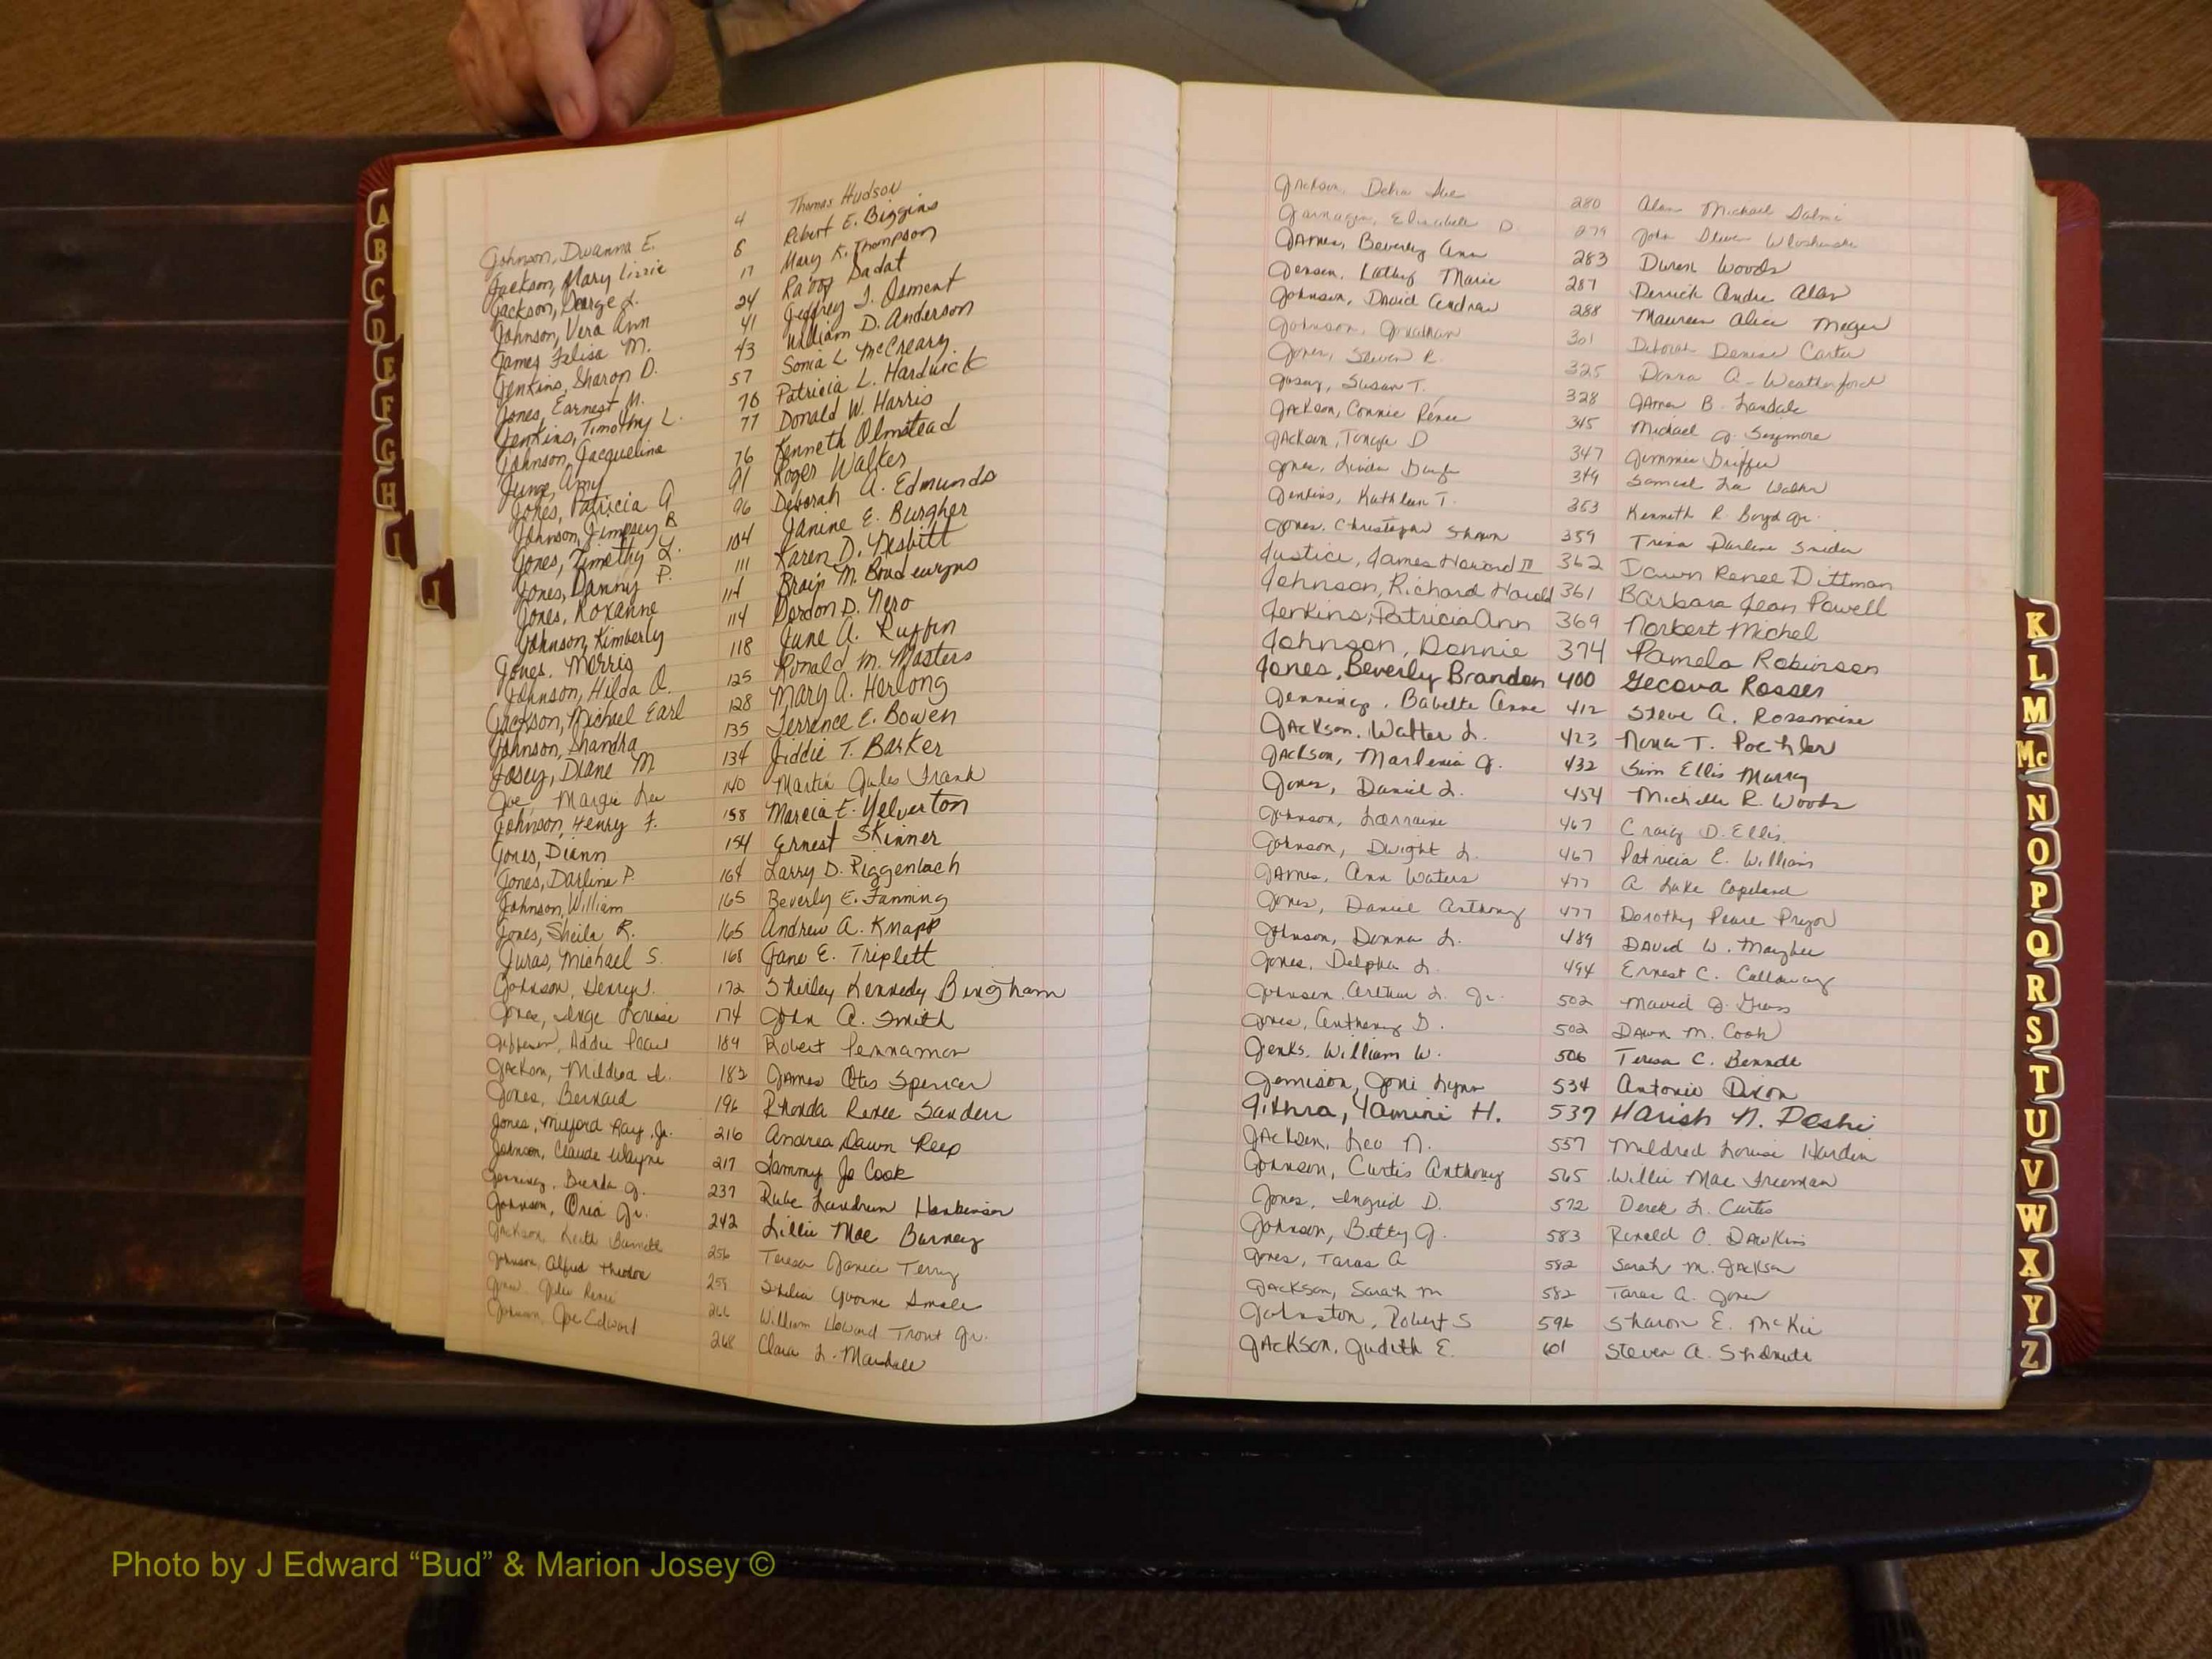 Johnson, Dwanna E. 4 Thomas Hudson
Jackson, Mary Lizzie 8 Robert E. Biggins
Jackson, George L. 17 Mary K. Thompson
Johnson, Vera Ann 24 Ra'oof Sadat
James Felisa M. 41 Jeffrey J. Osment
Jenkins, Sharon D. 43 William D. Anderson
Jones, Earnest M. 57 Sonia L. McCreary
Jenkins, Timothy L. 76 Patricia L. Hardwick
Johnson, Jacqueline 77 Donald W. Harris
Junge, Amy 76 Kenneth Olmstead
Jones, Patricia A 91 Roger Walker
Johnson, Jimpsey B 96 Deborah A. Edmunds
Jones, Timothy L. 104 Janine E. Burgher
Jones, Danny P. 111 Karen D. Nesbitt
Jones, Roxanne 114 Brain M. Boudewyns
Johnson, Kimberly 114 Gordon D. Nero
Jones, Morris 118 June A. Ruffin
Johnson, Hilda A. 125 Ronald M. Masters
Jackson, Michael Earl 128 Mary A. Herlong
Johnson, Shandra 135 Terrence E. Bowen
Josey, Diane M 134 Jiddie T. Barker
Joe Margie Lee 140 Martin Jules Frank
Johnson, Henry F. 158 Marcia E. Yelverton
Jones, Diann 154 Ernest Skinner
Jones, Darline P. 164 Larry D. Riggenbach
Johnson, William 165 Beverly E. Fanning
Jones, Sheila R. 165 Andrew A. Knapp
Juras, Michael S. 168 Jane E. Triplett
Johnson, Henry J. 172 Shirley Kennedy Bingham
Jones, Inge Louise 174 John A. Smith
Jefferson, Addie Pearl 184 Robert Pennamon
Jackson, Mildred L. 183 James Otis Spencer
Jones, Bernard 196 Rhonda Renee Sanders
Jones, Milford Ray, Jr. 216 Andrea Dawn Reep
Johnson, Claude Wayne 217 Tammy Jo Cook
Jennings, Brenda J. 237 Rube Landrum Hankinson
Johnson, Oria Jr. 242 Lillie Mae Burney
Jackson, Keith Burnett 256 Teresa Janice Terry
Johnson, Alfred Theodore 259 Shelia Yvonne Smale
Jones Julie Renee 266 William Howard Trout Jr.
Johnson, Joe Edward 268 Clara L. Marshall
Jackson, Debra Sue 280 Alan Michael
Jarnagin, Elizabeth D 279 John Steven
James, Beverly Ann 283 Duren Woods
Jensen, Kathy Marie 287 Derrick Andre
Johnson, David Andrew 288 Maureen Alice Meyer
Johnson, Jonathan 301 Deborah Denise Carter
Jones, Steven R. 325 Donna A. Weatherford
Josey, Susan T. 328 James B. Landale
Jackson, Connie Renee 345 Michael J. Seymore
Jackson, Tonya D 347 Jimmie Griffin
Jones, Linda Gayle 349 Samuel Lee Walker
Jenkins, Kathleen T. 353 Kenneth R. Boyd Jr.
Jones, Christopher Shawn 359 Trina Darlene Snider
Justice, James Howard IV 362 Dawn Renee Dittman
Johnson, Richard Harold 361 Barbara Jean Powell
Jenkins, Patricia Ann 369 Norbert Michel
Johnson, Donnie 374 Pamela Robinson
Jones, Beverly Brandon 400 Gecova Rosser
Jennings, Babette Anne 412 Steve A.
Jackson, Walter L. 423 Nona T. Poehler
Jackson, Marlenia J. 432 Sim Ellis Murray
Jones, Daniel L. 454 Michelle R. Woods
Johnson, Lorraine 467 Craig D. Ellis
Johnson, Dwight L. 467 Patricia E. Williams
James, Ann Waters 477 A Lake Copeland
Jones, Daniel Anthony 477 Dorothy Pryor
Johnson, Donna L. 489 David W. Mayhew
Jones, Delpha L. 494 Ernest C. Calloway
Johnson Arthur L. Jr. 502 J. Gross
Jones, Anthony D. 502 Dawn M. Cook
Jenks, William W. 506 Teresa C.
Jemison, Joni Lynn 534 Antonio Dixon
Jithra, Yamini H. 537 Harish N. Doshi
Jackson, Leo N. 557 Mildred Louise Hardin
Johnson, Curtis Anthony 565 Willie Mae Freeman
Jones, Ingrid D. 572 Derek L. Curtis
Johnson, Betty J. 583 Ronald O. Dawkins
Jones, Taras A 582 Sarah M. Jackson
Jackson, Sarah M 582 Taras A. Jones
Johnston, Robert S 596 Sharon E. McKie
Jackson, Judith E. 601 Steven A.
A
B
C
D
E
F
G
H
I
J
K
L
M
Mc
N
O
P
Q
R
S
T
U
V
W
X
Y
Z
Photo by J Edward “Bud” & Marion Josey ©